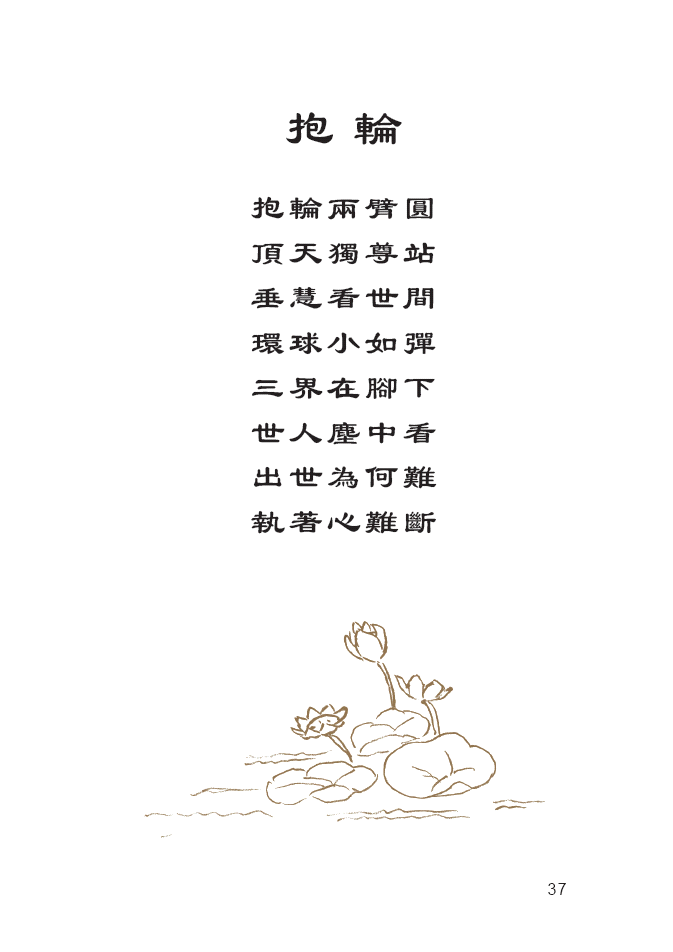 抱輪
抱輪兩臂圓
頂天獨尊站
垂慧看世間
環球小如彈
三界在腳下
世人塵中看
出世為何難
執著心難斷
37